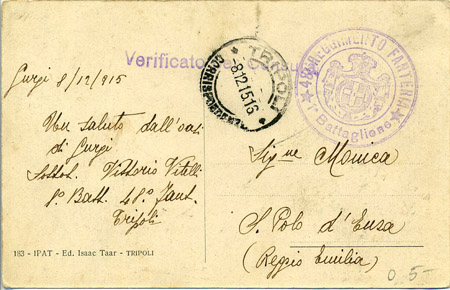 Gurgi 8/12/915
Un saluto dall'oasi
di Gurgi
Sottot. Vittorio Vitelli
1º Batt. 48º Fant.
Tripoli
Verificato
TRIPOLI
-8.12.15.16
REGGIMENTO FANTERIA
1º Battaglione
Sig.ne Monica
S. Polo d'Enza
(Reggio Emilia)
183 - IPAT - Ed. Isaac Taar - TRIPOLI
0.5-